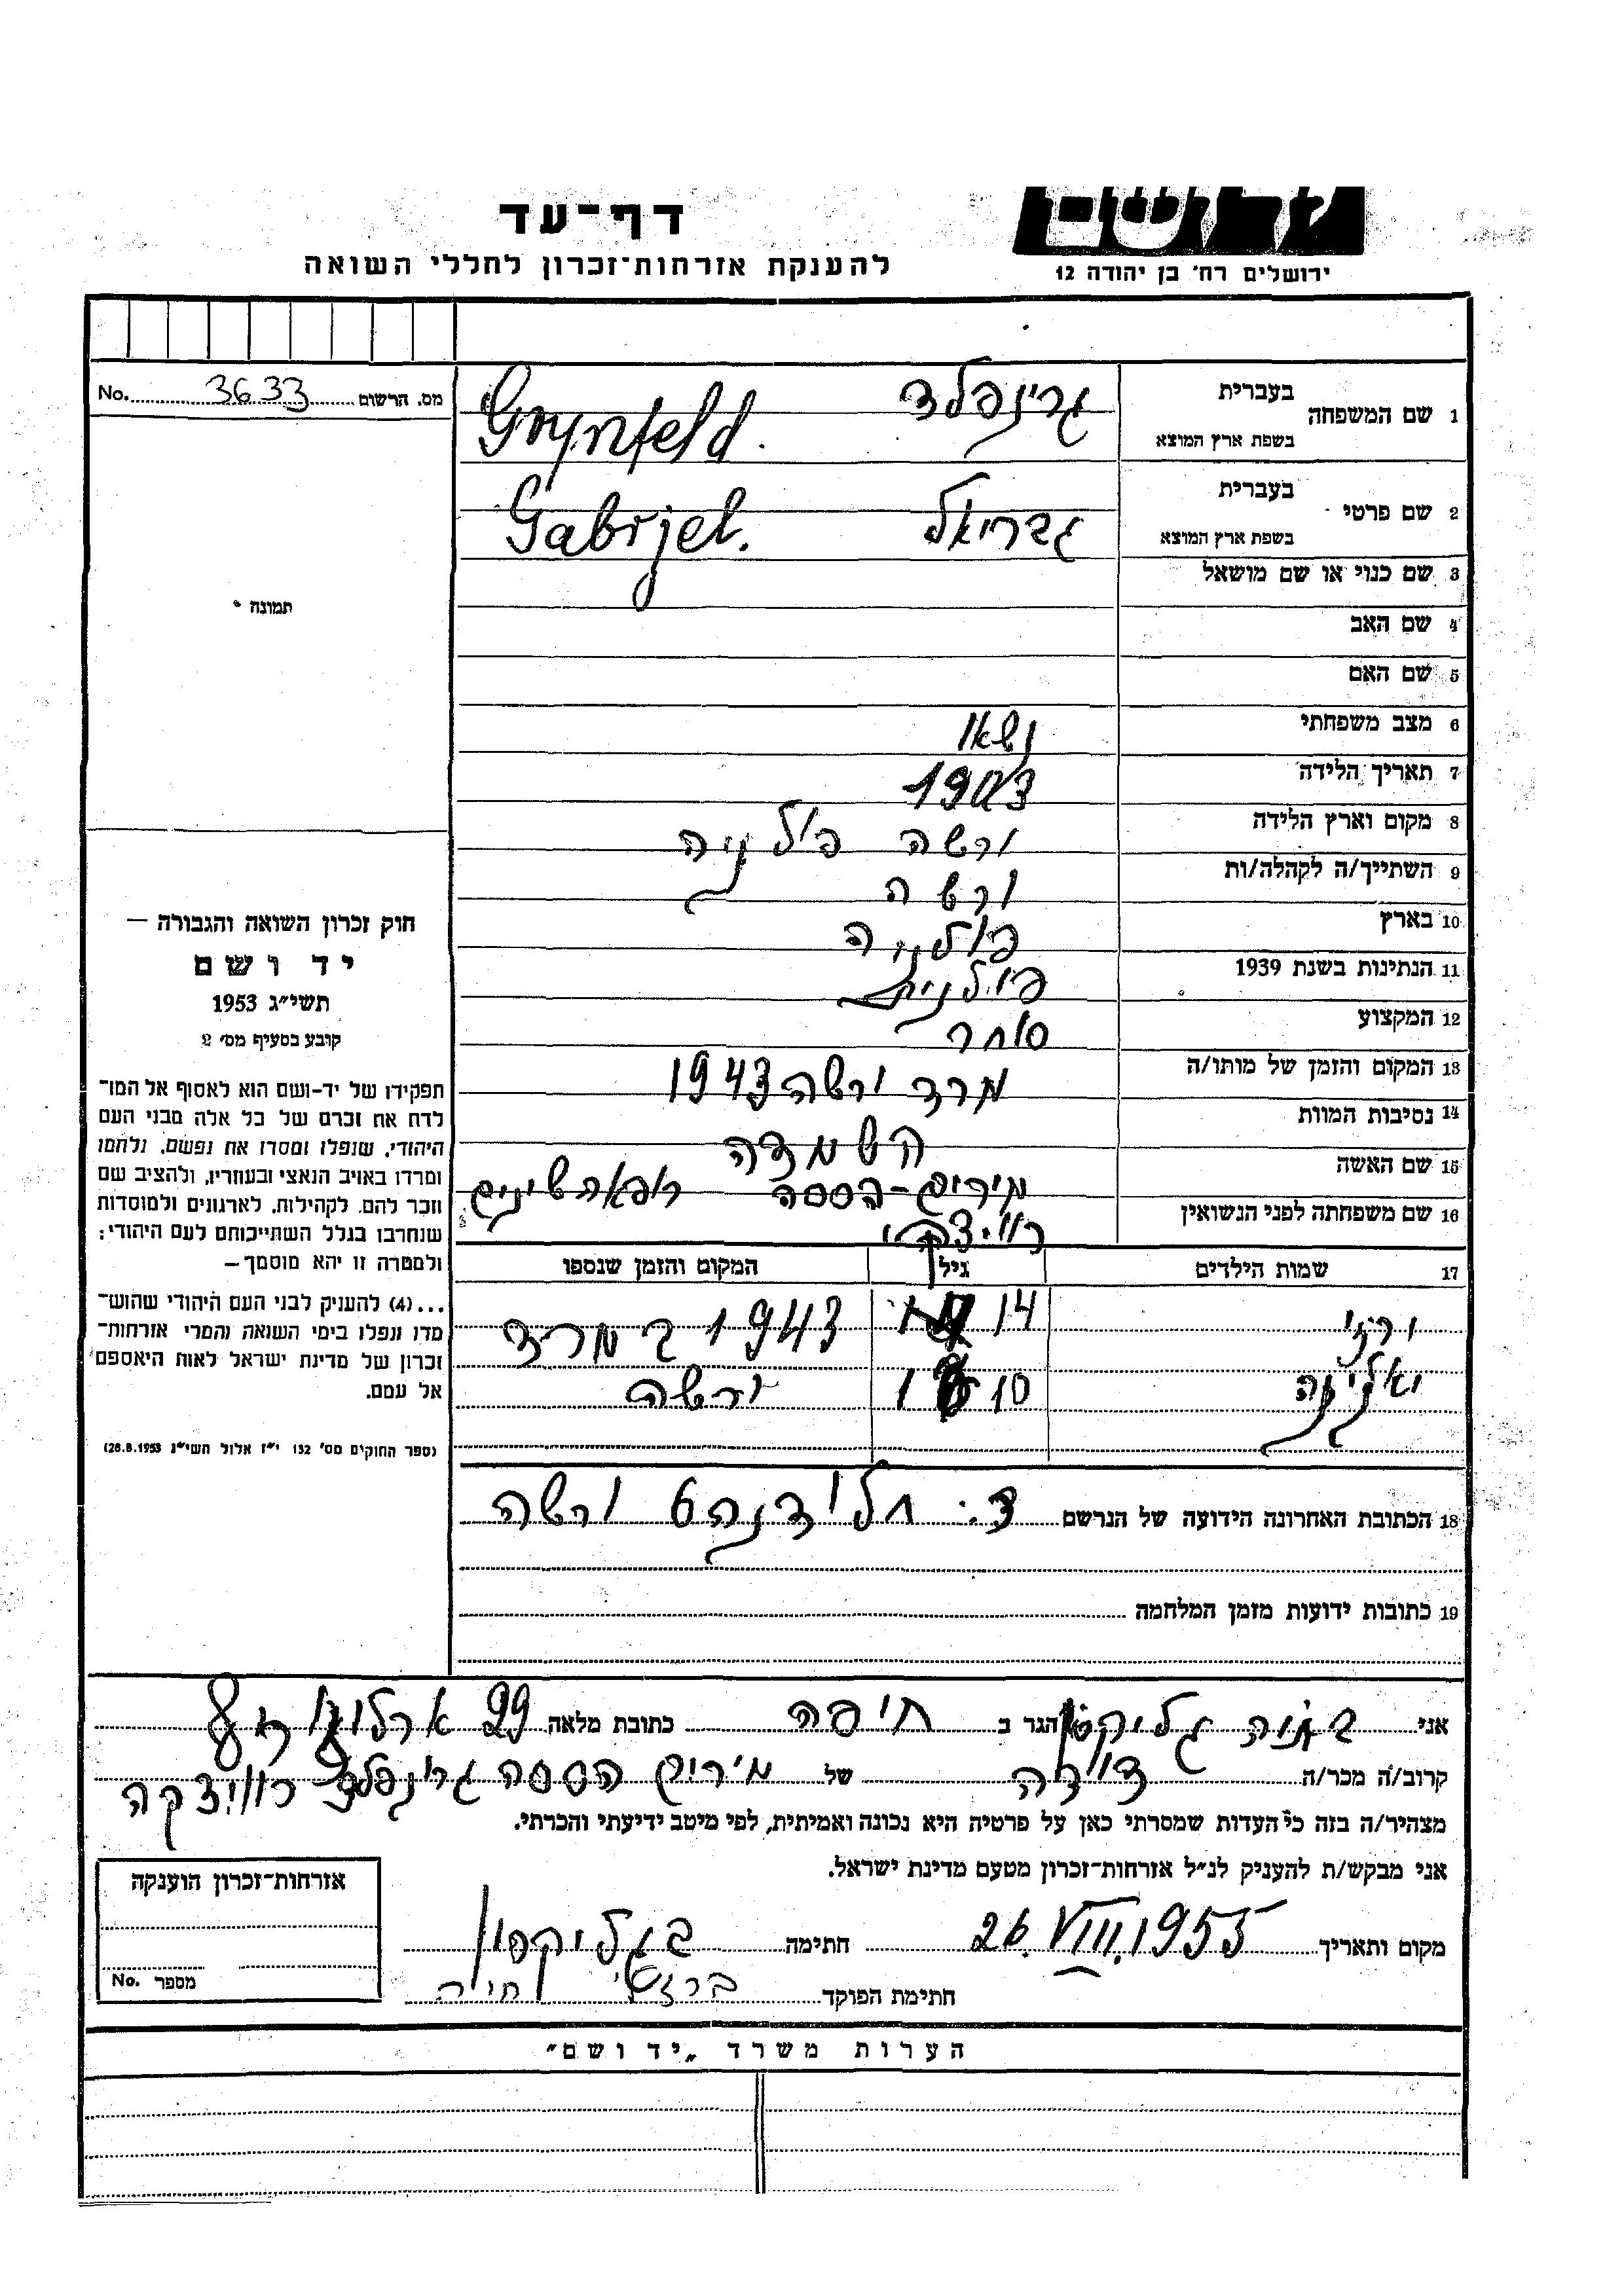 דף-עד
להענקת אזרחות-זכרון לחללי השואה
ושם
ירושלים רח' בן יהודה 12
מס. הרשום 3633 No.
תמונה
1 שם המשפחה בעברית גרינפלד
בשפת ארץ המוצא Grynfeld.
2 שם פרטי בעברית גבריאל
בשפת ארץ המוצא Gabrjel.
3 שם כנוי או שם מושאל
4 שם האב
5 שם האם
6 מצב משפחתי נשאו
7 תאריך הלידה 1903
8 מקום וארץ הלידה ורשה פולניה
9 השתייך/ה לקהלה/ות ורשה
10 בארץ פולניה
11 הנתינות בשנת 1939
12 המקצוע סוחר
13 המקום והזמן של מותו/ה מרד ורשה 1943
14 נסיבות המוות השמדה
15 שם האשה מירים-הססה רופאה שינים
16 שם משפחתה לפני הנשואין
17 שמות הילדים גיל המקום והזמן שנספו
14 1943 במרד
10 ורשה
18 הכתובת האחרונה הידועה של הנרשם ורשה
19 כתובות ידועות מזמן המלחמה
חוק זכרון השואה והגבורה —
יד ושם
תשי״ג 1953
קובע בסעיף מס׳ 2
תפקידו של יד-ושם הוא לאסוף אל המו־
לדת את זכרם של כל אלה מבני העם
היהודי, שנפלו ומסרו את נפשם, נלחמו
ומרדו באויב הנאצי ובעוזריו, ולהציב שם
וזכר להם, לקהילות, לארגונים ולמוסדות
שנחרבו בגלל השתייכותם לעם היהודי;
ולמטרה זו יהא מוסמך —
...(4) להעניק לבני העם היהודי שהוש־
מדו ונפלו בימי השואה והמרי אזרחות־
זכרון של מדינת ישראל לאות היאספם
אל עמם.
(ספר החוקים מס׳ 132 י״ז אלול תשי״ג 28.8.1953)
אני גליקסון הגר ב חיפה כתובת מלאה 29
קרוב/ה מכר/ה דודה של מירים הססה גרינפלד
מצהיר/ה בזה כי העדות שמסרתי כאן על פרטיה היא נכונה ואמיתית, לפי מיטב ידיעתי והכרתי.
אני מבקש/ת להעניק לנ״ל אזרחות-זכרון מטעם מדינת ישראל.
מקום ותאריך 26.VIII.1955 חתימה ב גליקסון
חתימת הפוקד חיה
אזרחות-זכרון הוענקה
מספר No.
הערות משרד „יד ושם״